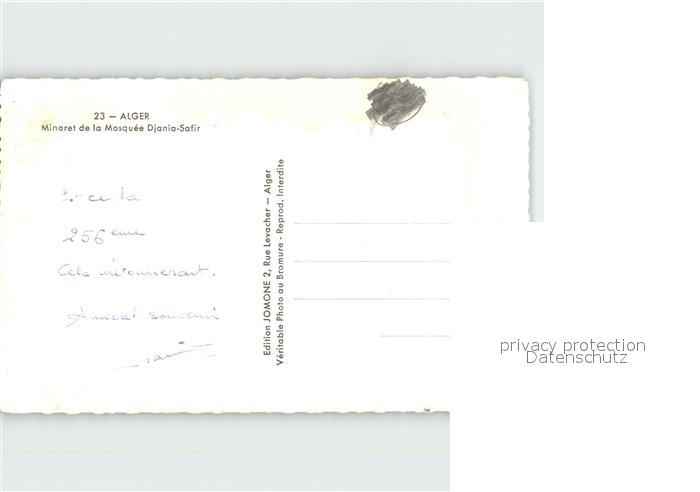 23 — ALGER
Minaret de la Mosquée Djania-Safir
ce la
256 eme
Cela m'étonnerait.
Amical souvenir
Edition JOMONE 2, Rue Levacher — Alger
Véritable Photo au Bromure - Reprod. Interdite
privacy protection
Datenschutz